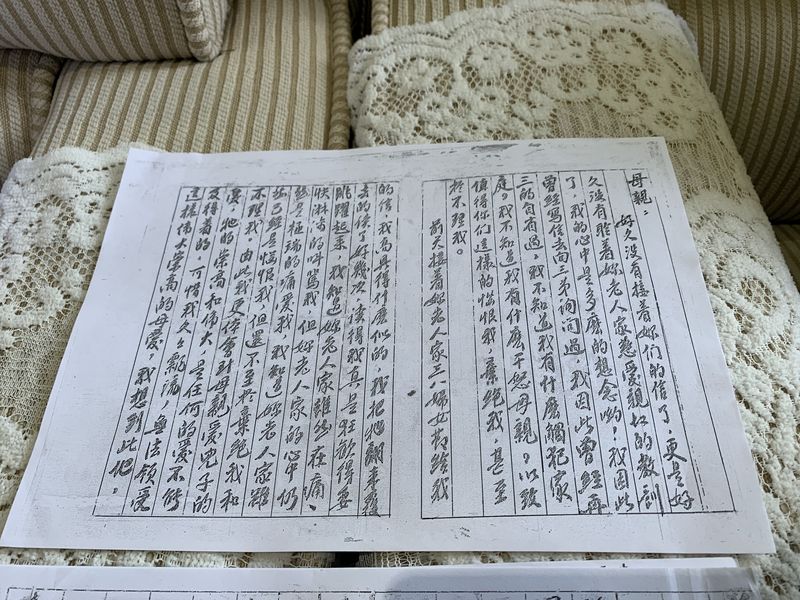 母親：
好久沒有接着妳们的信了，更是好
久沒有聆着妳老人家慈愛親切的教訓
了，我的心中是多麽的想念喲，我因此
曾經寫信去向三弟詢問過，我因此曾經再
三的自省過，我不知道我有什麽觸犯家
庭。我不知道我有什麽干怒母親，以致
值得你们這樣的惱恨我，棄絕我，甚至
於不理我。
前天接着妳老人家三八婦女節給我
的信，我高興得什麽似的，我把他翻來覆
去的讀了好幾次，讀得我真是狂歡得要
跳躍起來，我知道妳老人家雖然在痛、
快淋漓的呼罵我，但妳老人家的心中仍
然是極端的痛愛我，我知道妳老人家雖
然已經是惱恨我，但還不至於棄絕我和
不理我。由此我更体會到母親愛兒子的
愛，牠的崇高和偉大，是任何的愛不能
及得着的，可惜我久久飄流，無法領受
這樣偉大崇高的母愛，我想到此化。